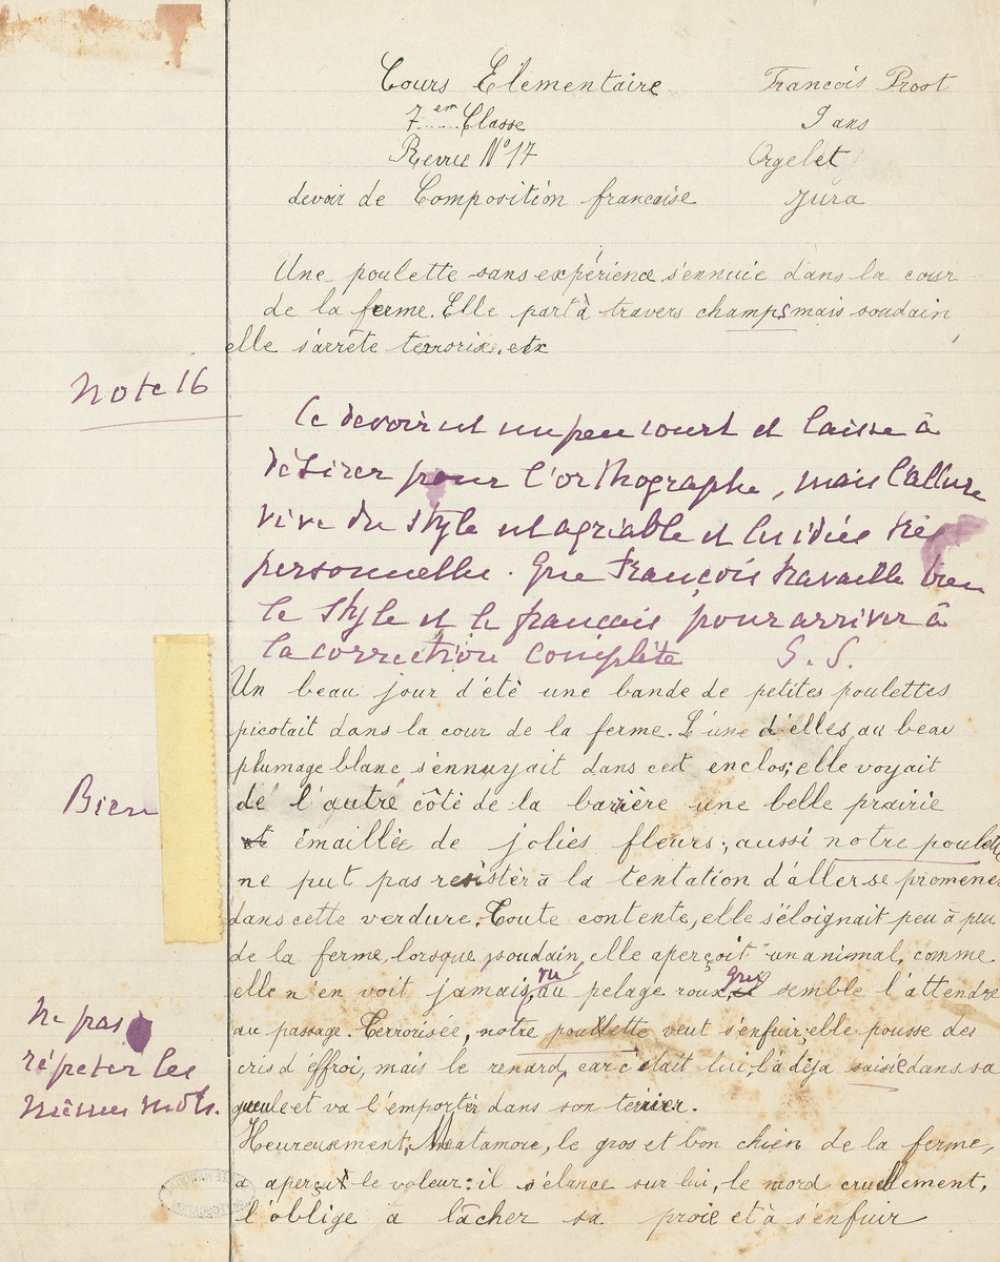 Cours Élementaire
François Prost
7em Classe
9 ans
Revue N°17
Orgelet
devoir de Composition francaise
Jura
Une poulette sans expérience s'ennuie dans la cour
de la ferme. Elle part à travers champs mais soudain,
elle s'arrête terrorisé. etc
Note 16
Ce devoir est un peu court et laisse à
désirer pour l'orthographe, mais l'allure
vive du style est agréable et les idées très
personnelles. Que François travaille bien
le style et le français pour arriver à
la correction complète S. S.
Un beau jour d'été une bande de petites poulettes
picotait dans la cour de la ferme. L'une d'elles, au beau
plumage blanc s'ennuyait dans cet enclos; elle voyait
Bien
de l'autre côté de la barière une belle prairie
émaillée de jolies fleurs; aussi notre poulette
ne put pas resister à la tentation d'aller se promener
dans cette verdure. Toute contente, elle s'éloignait peu à peu
de la ferme, lorsque, soudain, elle aperçoit un animal, comme
elle n'en voit jamais, vu au pelage roux, qui semble l'attendre
Ne pas
répeter les
mêmes mots.
au passage. Terrorisée, notre poullette veut s'enfuir; elle pousse des
cris d'éffroi, mais le renard, car c'était lui, l'a déja saisie dans sa
gueule et va l'emporter dans son terrier.
Heureusement, Matamore, le gros et bon chien de la ferme,
a aperçu le voleur: il s'élance sur lui, le mord cruellement,
l'oblige a lâcher sa proie et à s'enfuir